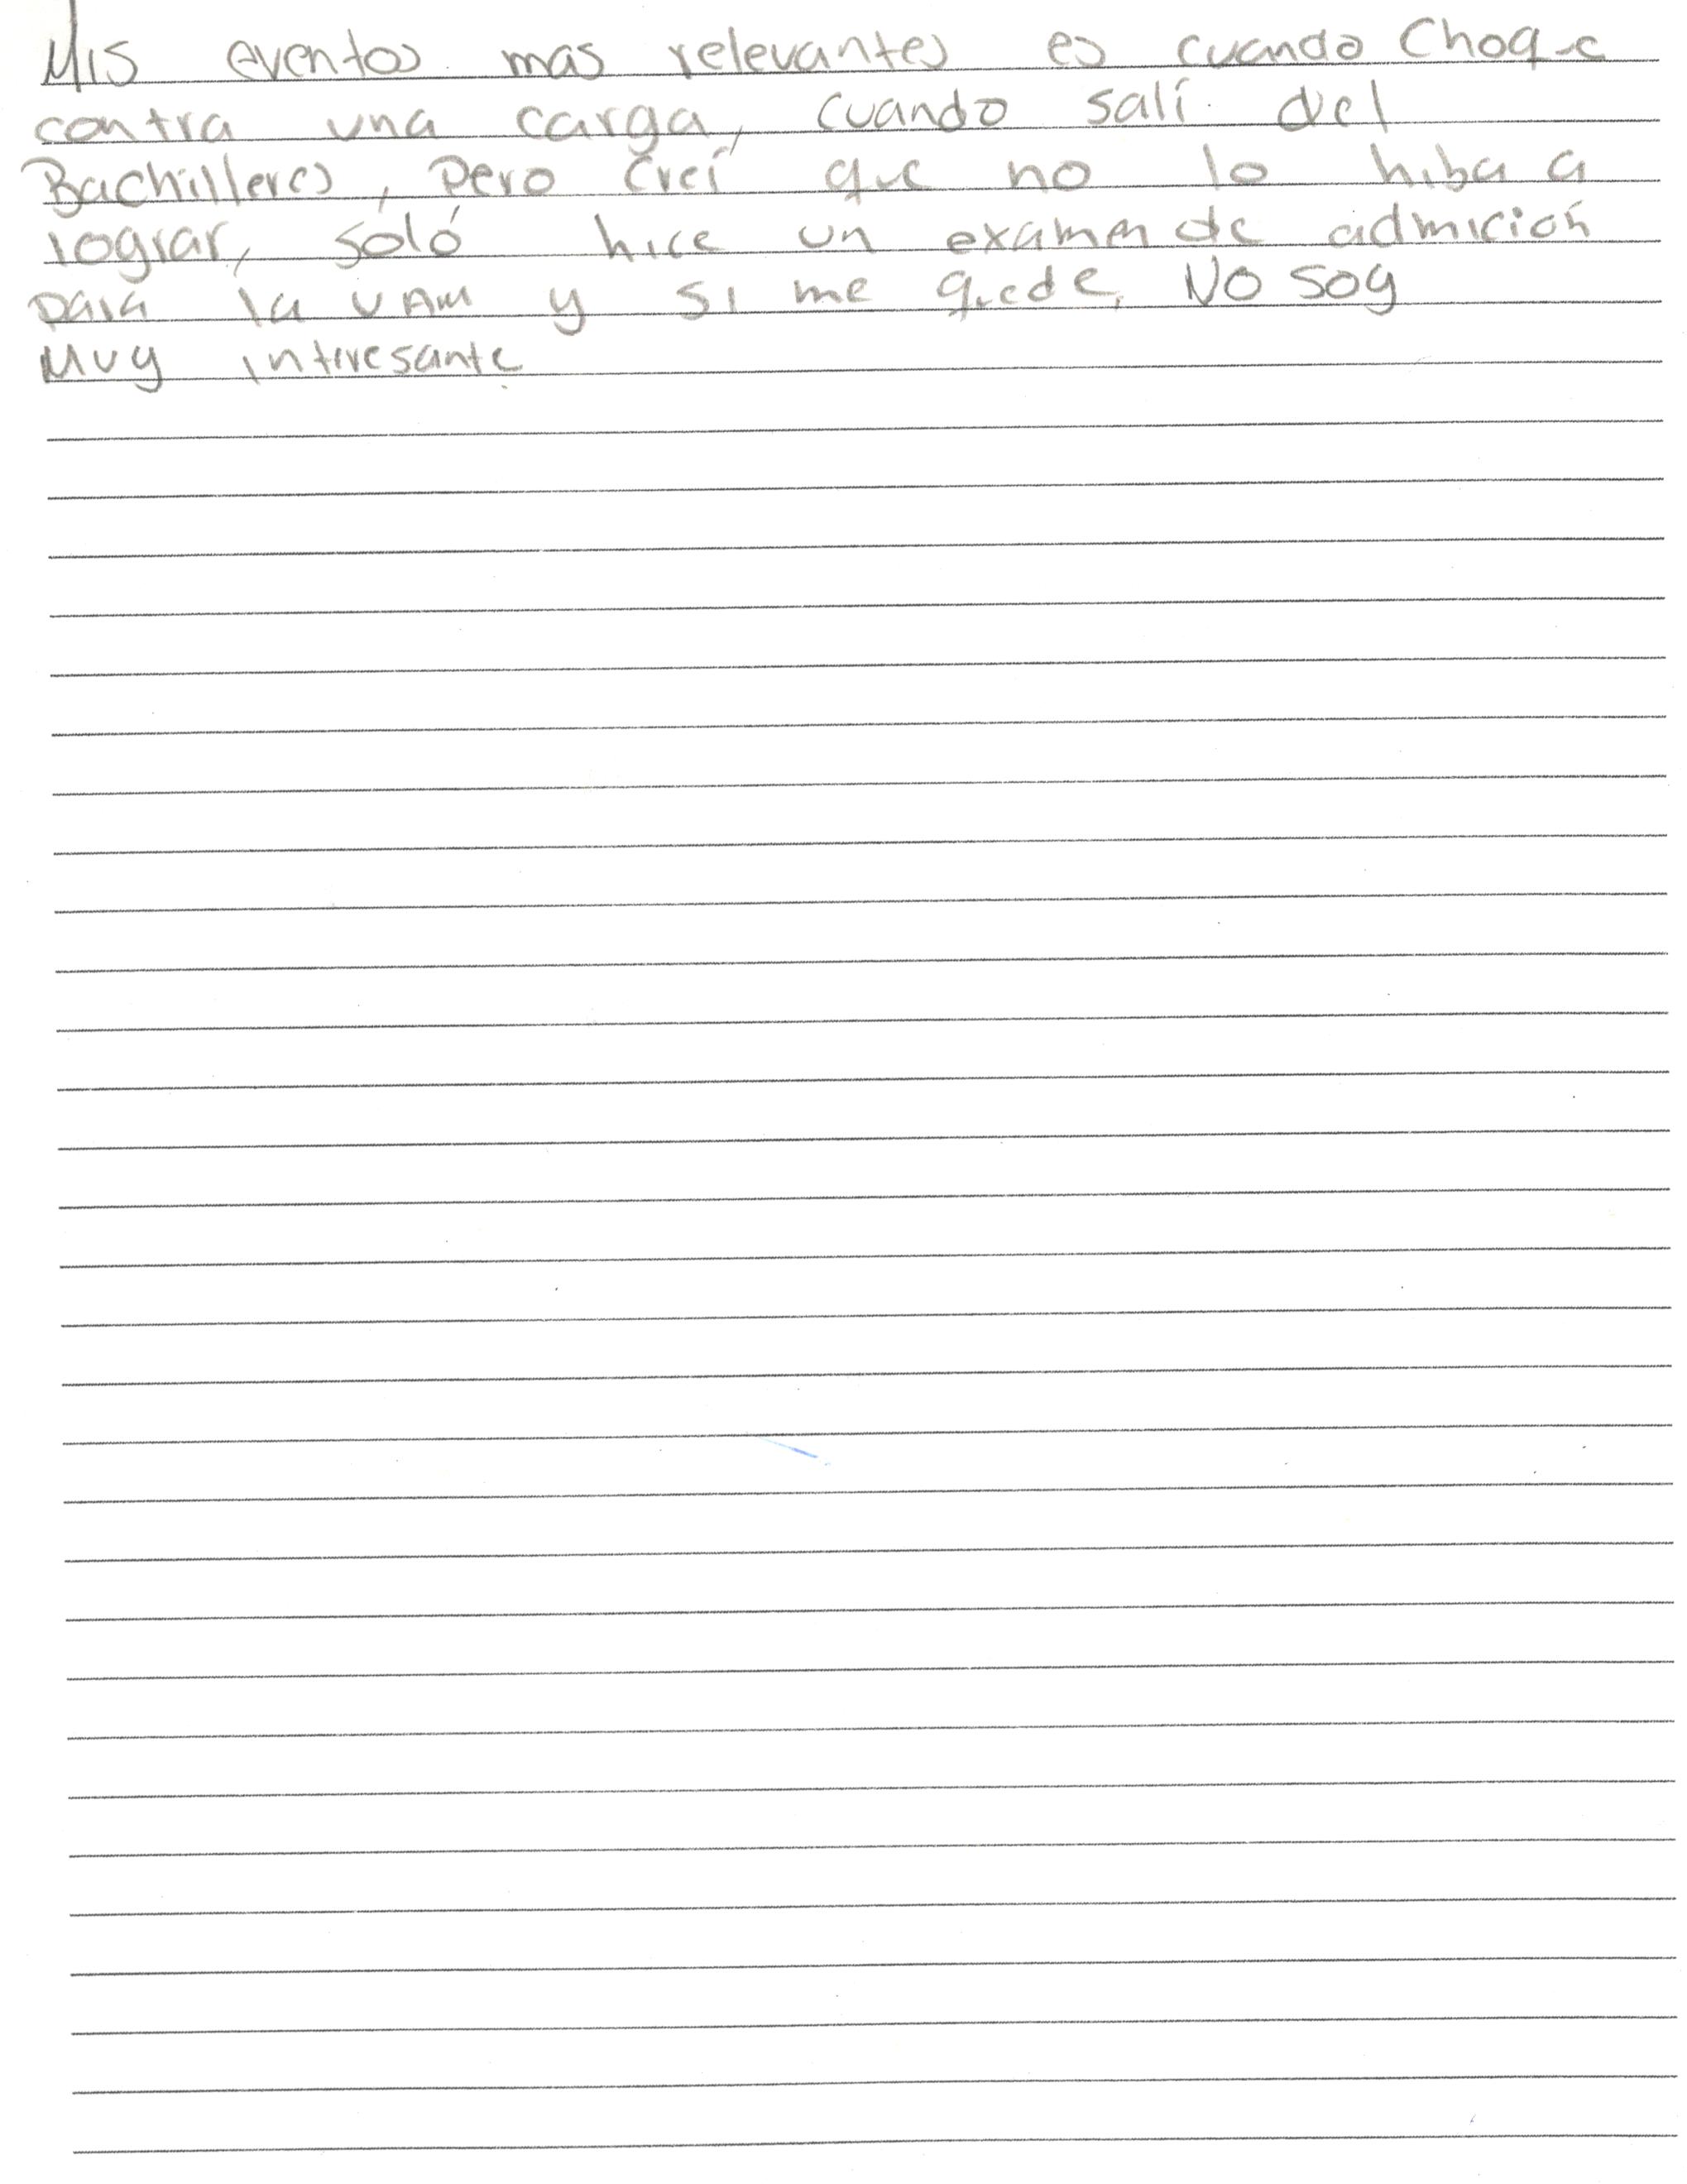 Mis eventos mas relevantes es cuando Choque
contra una carga, cuando salí del
Bachilleres, pero creí que no lo hiba a
lograr, sóló hice un examen de admición
para la UAM y si me quede. No soy
Muy interesante.